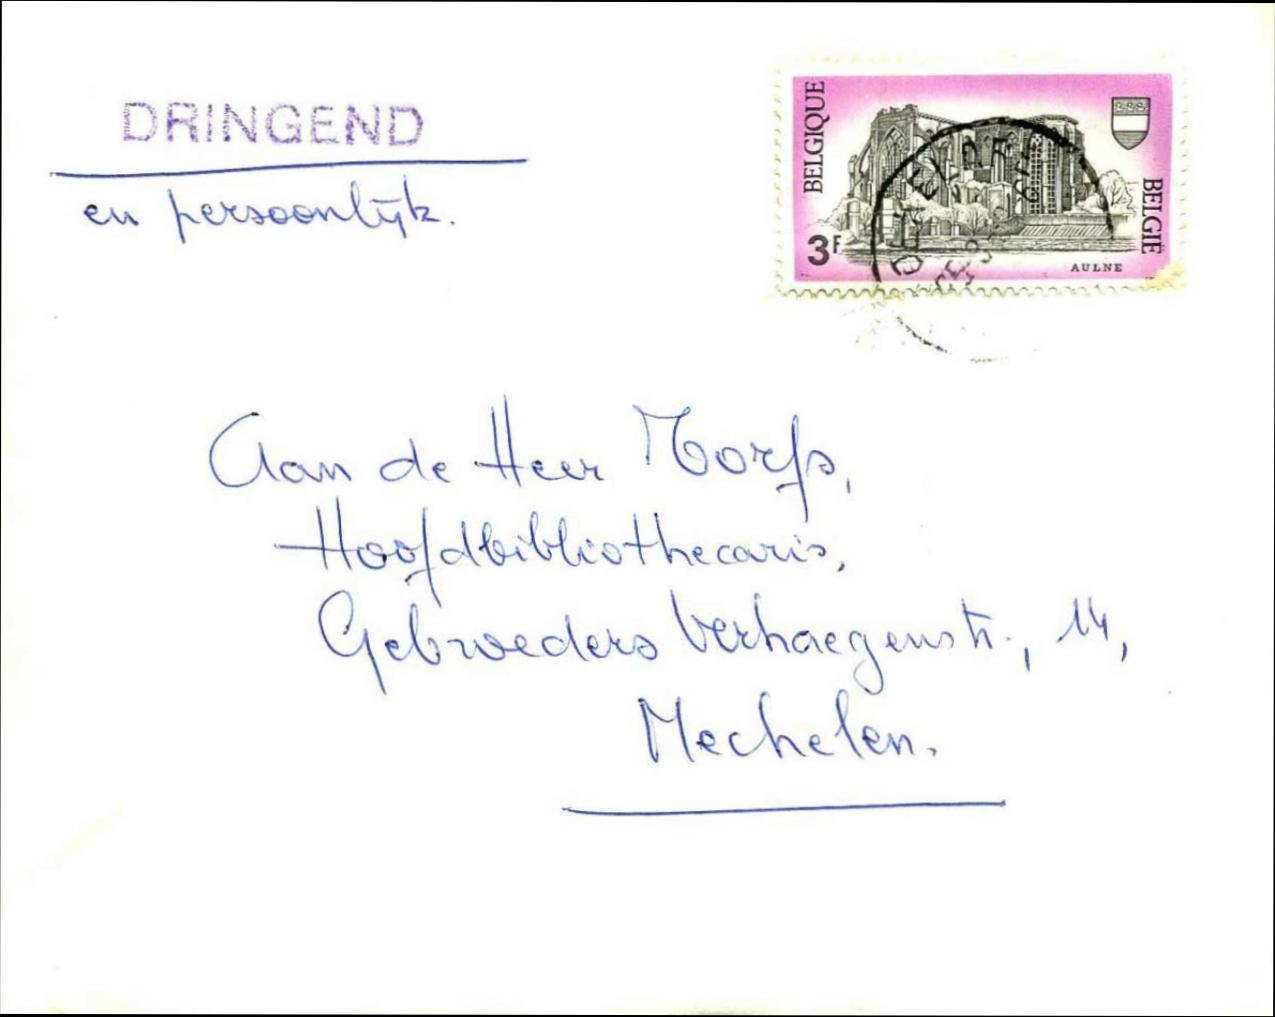 DRINGEND
en persoonlijk.
BELGIQUE
BELGIË
3F
AULNE
Aan de Heer Morfs,
Hoofdbibliothecaris,
Gebroeders Verhaegenstr., 14,
Mechelen.